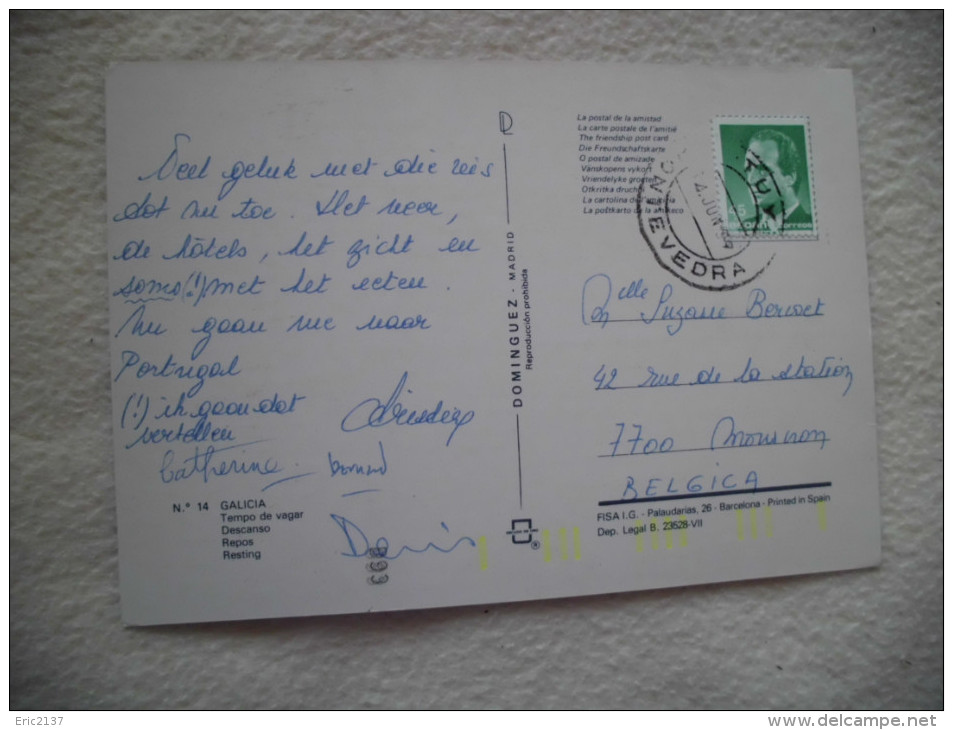 Veel geluk met die reis
tot nu toe. Het weer,
de hôtels, het zicht en
soms (!) met het eeten.
Nu gaan we naar
Portugal
(!) ik gaan dat
vertellen
Catherine. bernard
Doris
N.° 14 GALICIA
Tempo de vagar
Descanso
Repos
Resting
DOMINGUEZ - MADRID
Reproducción prohibida
®
La postal de la amistad
La carte postale de l'amitié
The friendship post card
Die Freundschaftskarte
O postal de amizade
Vänskopens vykort
Vriendelyke groeten
Otkritka druchba
La cartolina
La poŝtkarto de la amikeco
PONTEVEDRA
JUN
correos
Melle Suzanne
42 rue de la station
7700 Mouscron
BELGICA
FISA I.G. - Palaudarias, 26 - Barcelona - Printed in Spain
Dep. Legal B. 23528-VII
Eric2137
http://www.delcampe.net